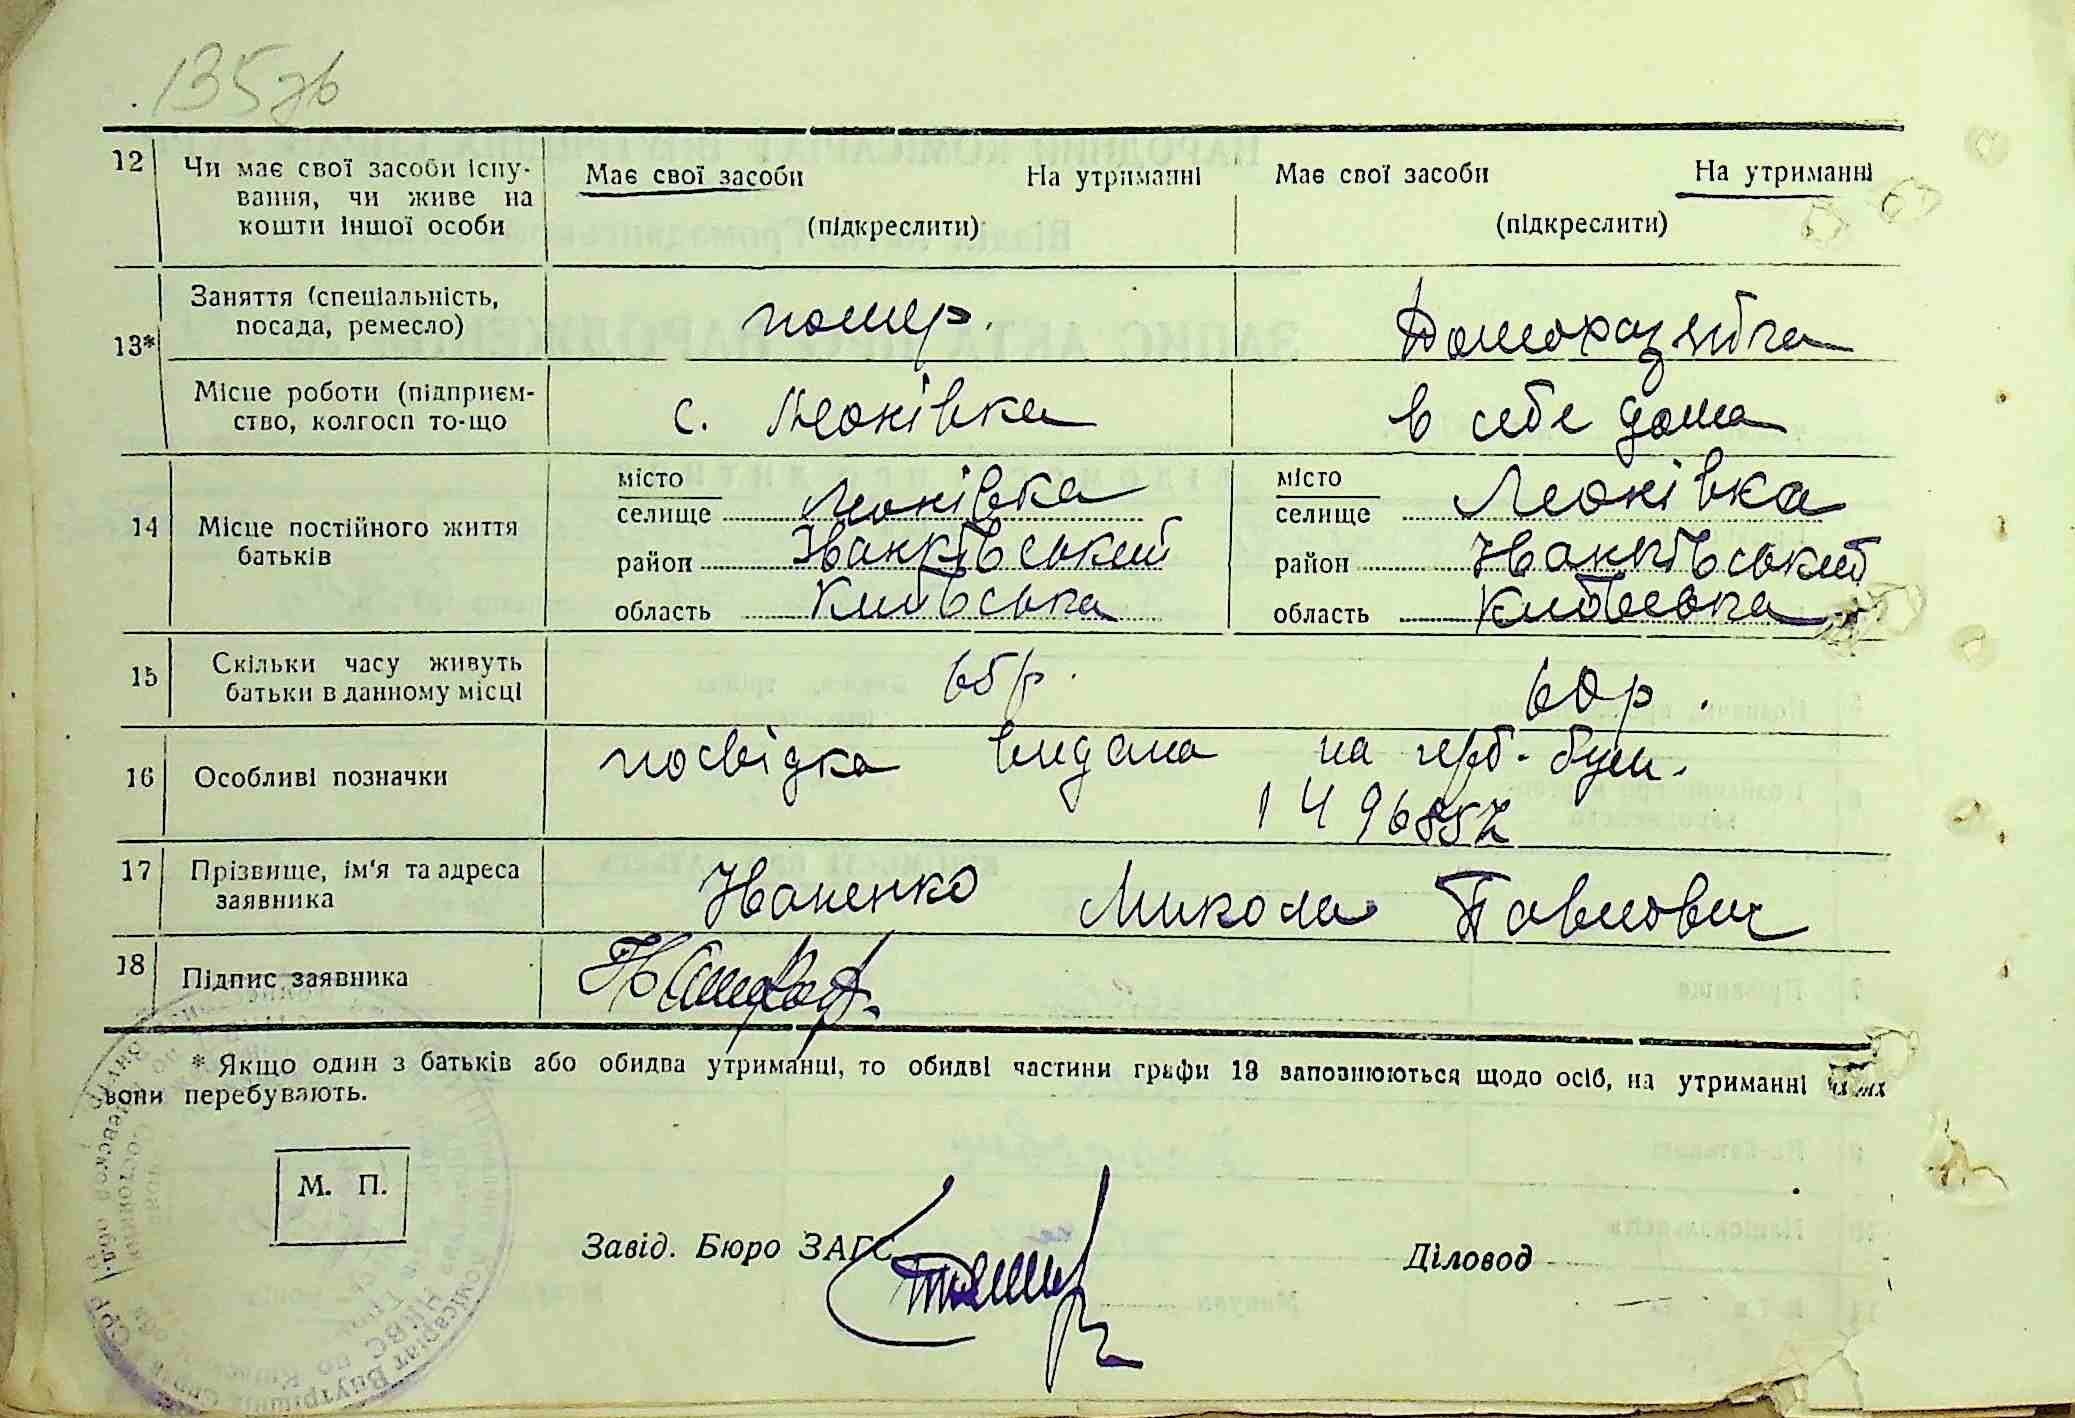 135зв
12 Чи має свої засоби існу- Має свої засоби На утриманні Має свої засоби На утриманні
вання, чи живе на
кошти іншої особи (підкреслити) (підкреслити)
13* Заняття (спеціальність, помер. Домохазяйка
посада, ремесло)
Місце роботи (підприєм- с. Леонівка в себе дома
ство, колгосп то-що
14 Місце постійного життя батьків місто Леонівка місто Леонівка
селище селище
район Іванківський район Іванківський
область Київська область Київська
15 Скільки часу живуть 65р. 60р.
батьки в данному місці
16 Особливі позначки посвідка видана на герб. бум.
17 Прізвище, ім'я та адреса Іваненко Микола Павлович
заявника
18 Підпис заявника
* Якщо один з батьків або обидва утриманці, то обидві частини графи 13 заповнюються щодо осіб, на утриманні яких
вони перебувають.
М. П.
Завід. Бюро ЗАГС Діловод